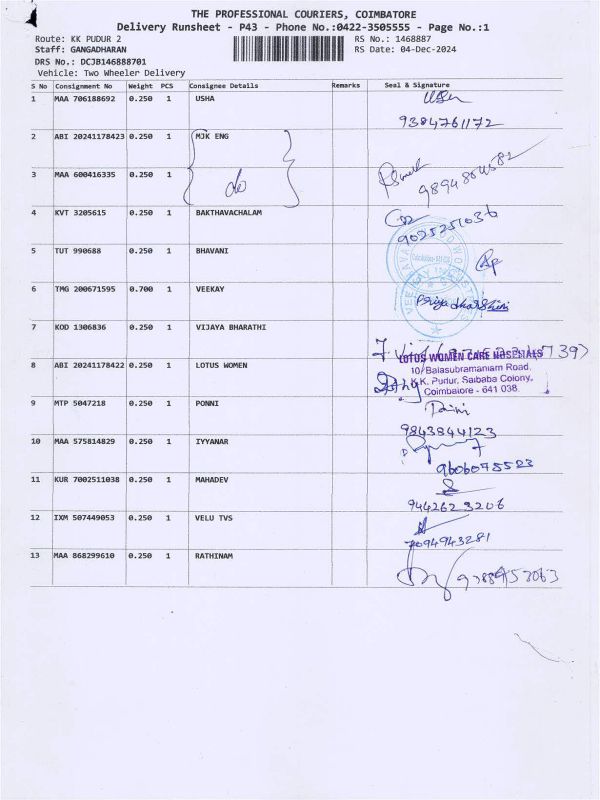 THE PROFESSIONAL COURIERS, COIMBATORE
Delivery Runsheet - P43 - Phone No.:0422-3505555 - Page No.:1
Route: KK PUDUR 2 RS No.: 1468887
Staff: GANGADHARAN RS Date: 04-Dec-2024
DRS No.: DCJB146888701
Vehicle: Two Wheeler Delivery
S No Consignment No Weight PCS Consignee Details Remarks Seal & Signature
1 MAA 706188692 0.250 1 USHA
9384761172
2 ABI 20241178423 0.250 1 MJK ENG
3 MAA 600416335 0.250 1 do
4 KVT 3205615 0.250 1 BAKTHAVACHALAM
9025251036
5 TUT 990688 0.250 1 BHAVANI
6 TMG 200671595 0.700 1 VEEKAY Priyadharshini
7 KOD 1306836 0.250 1 VIJAYA BHARATHI
8 ABI 20241178422 0.250 1 LOTUS WOMEN
LOTUS WOMEN CARE HOSPITALS
10, Balasubramaniam Road,
K.K. Pudur, Saibaba Colony,
Coimbatore - 641 038.
9 MTP 5047218 0.250 1 PONNI
9843844123
10 MAA 575814829 0.250 1 IYYANAR
9606075523
11 KUR 7002511038 0.250 1 MAHADEV
9442623206
12 IXM 507449053 0.250 1 VELU TVS
7094943281
13 MAA 868299610 0.250 1 RATHINAM